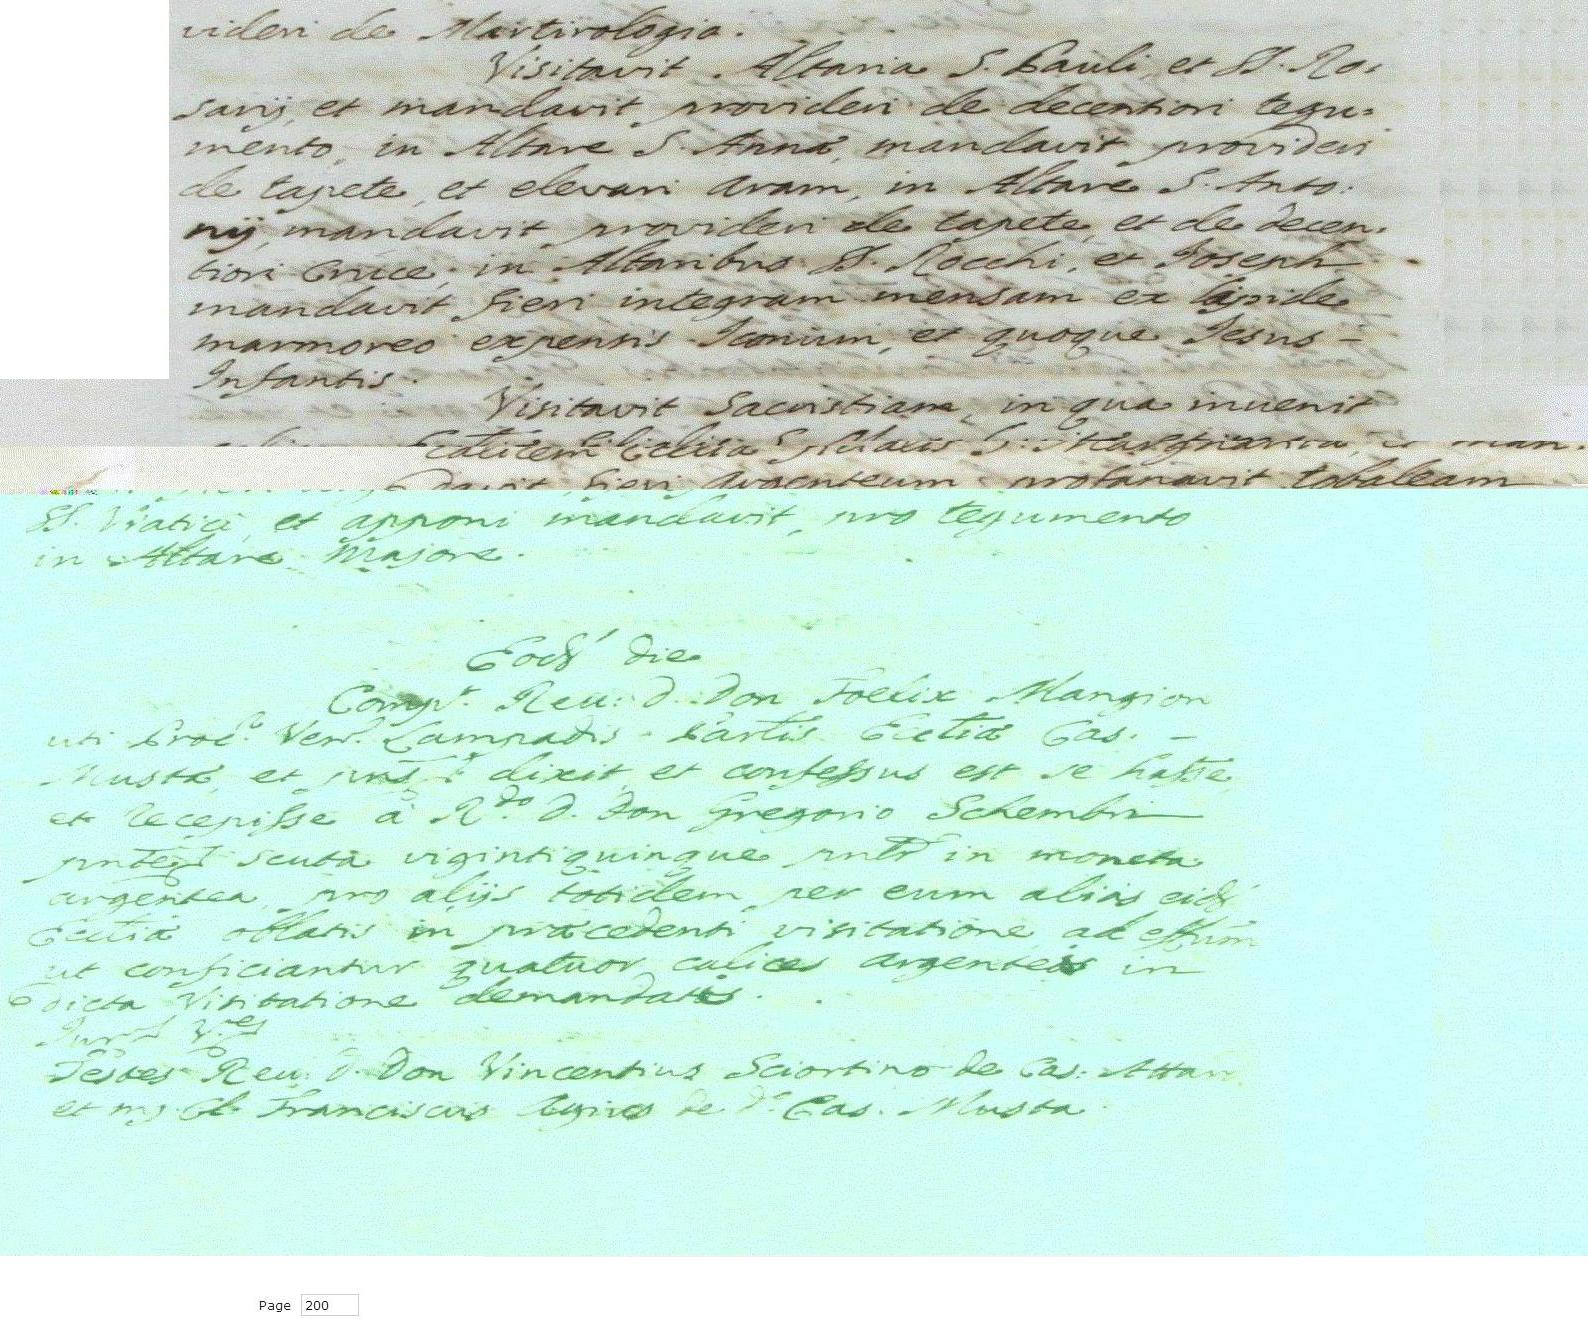 videri de Martirologio.
Visitavit Altaria S. Pauli, et SS. Ro-
sarij, et mandavit provideri de decentiori tegu-
mento, in Altare S. Annæ, mandavit provideri
de tapete, et elevari Aram, in Altare S. Anto:
nij, mandavit provideri de tapete, et de decen-
tiori Cruce, in Altaribus SS. Rocchi, et Joseph
mandavit fieri integram mensam ex lapide
marmoreo expensis Iconum, et quoque Jesus -
Infantis.
Visitavit Sacristiam, in qua invenit
S. Margarita
Davit fieri Argenteum profanavit tobaleam
SS. Viatici, et apponi mandavit, pro tegumento
in Altare Majore.
Eod. die
Comp. Reu: D. Don Foelix Mangion
uti Proc. Ven. Lampadis Parlis Ectiæ Cas. -
Mustæ, et dixit, et confessus est se
et recepisse à R.do D. Don Gregorio Schembri
scuta vigintiquinque in moneta
argentea, pro alijs totidem per eum alias
Ectiæ oblatis in præcedenti visitatione ad
ut conficiantur quatuor calices argenteos in
dicta Visitatione demandatis.
Testes Reu. D. Don Vincentius Sciortino de Cas: Attar
et Franciscus de Cas. Musta
Page 200